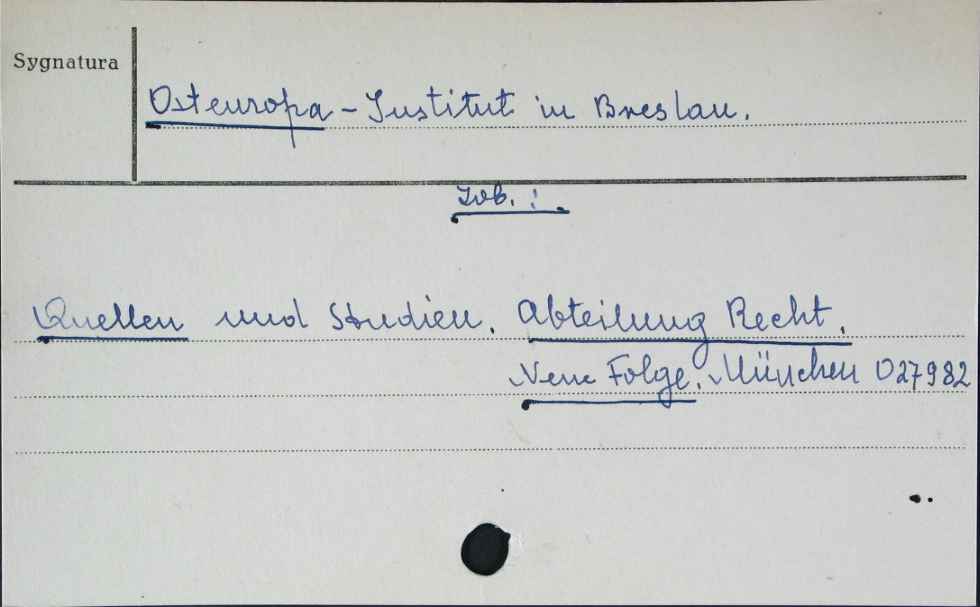 Sygnatura
Osteuropa-Institut in Breslau.
Zob. :
Quellen und Studien. Abteilung Recht.
Neue Folge. München 027982